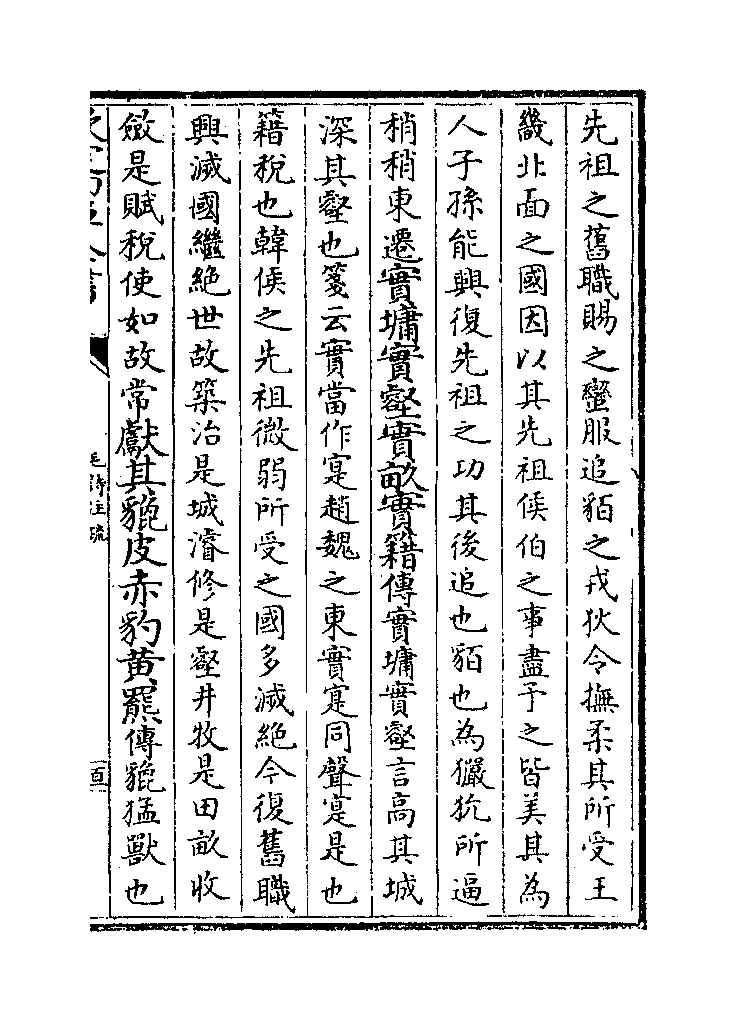 先祖之舊職賜之蠻服追貊之戎狄令撫柔其所受王
畿北面之國因以其先祖侯伯之事盡予之皆美其為
人子孫能興復先祖之功其後追也貊也為玁狁所逼
稍稍東遷實墉實壑實畝實籍傳實墉實壑言高其城
深其壑也箋云實當作寔趙魏之東實寔同聲寔是也
籍稅也韓侯之先祖微弱所受之國多滅絕今復舊職
興滅國繼絕世故築治是城濬修是壑井牧是田畝收
斂是賦稅使如故常獻其貔皮赤豹黄羆傳貔猛獸也
毛詩注疏